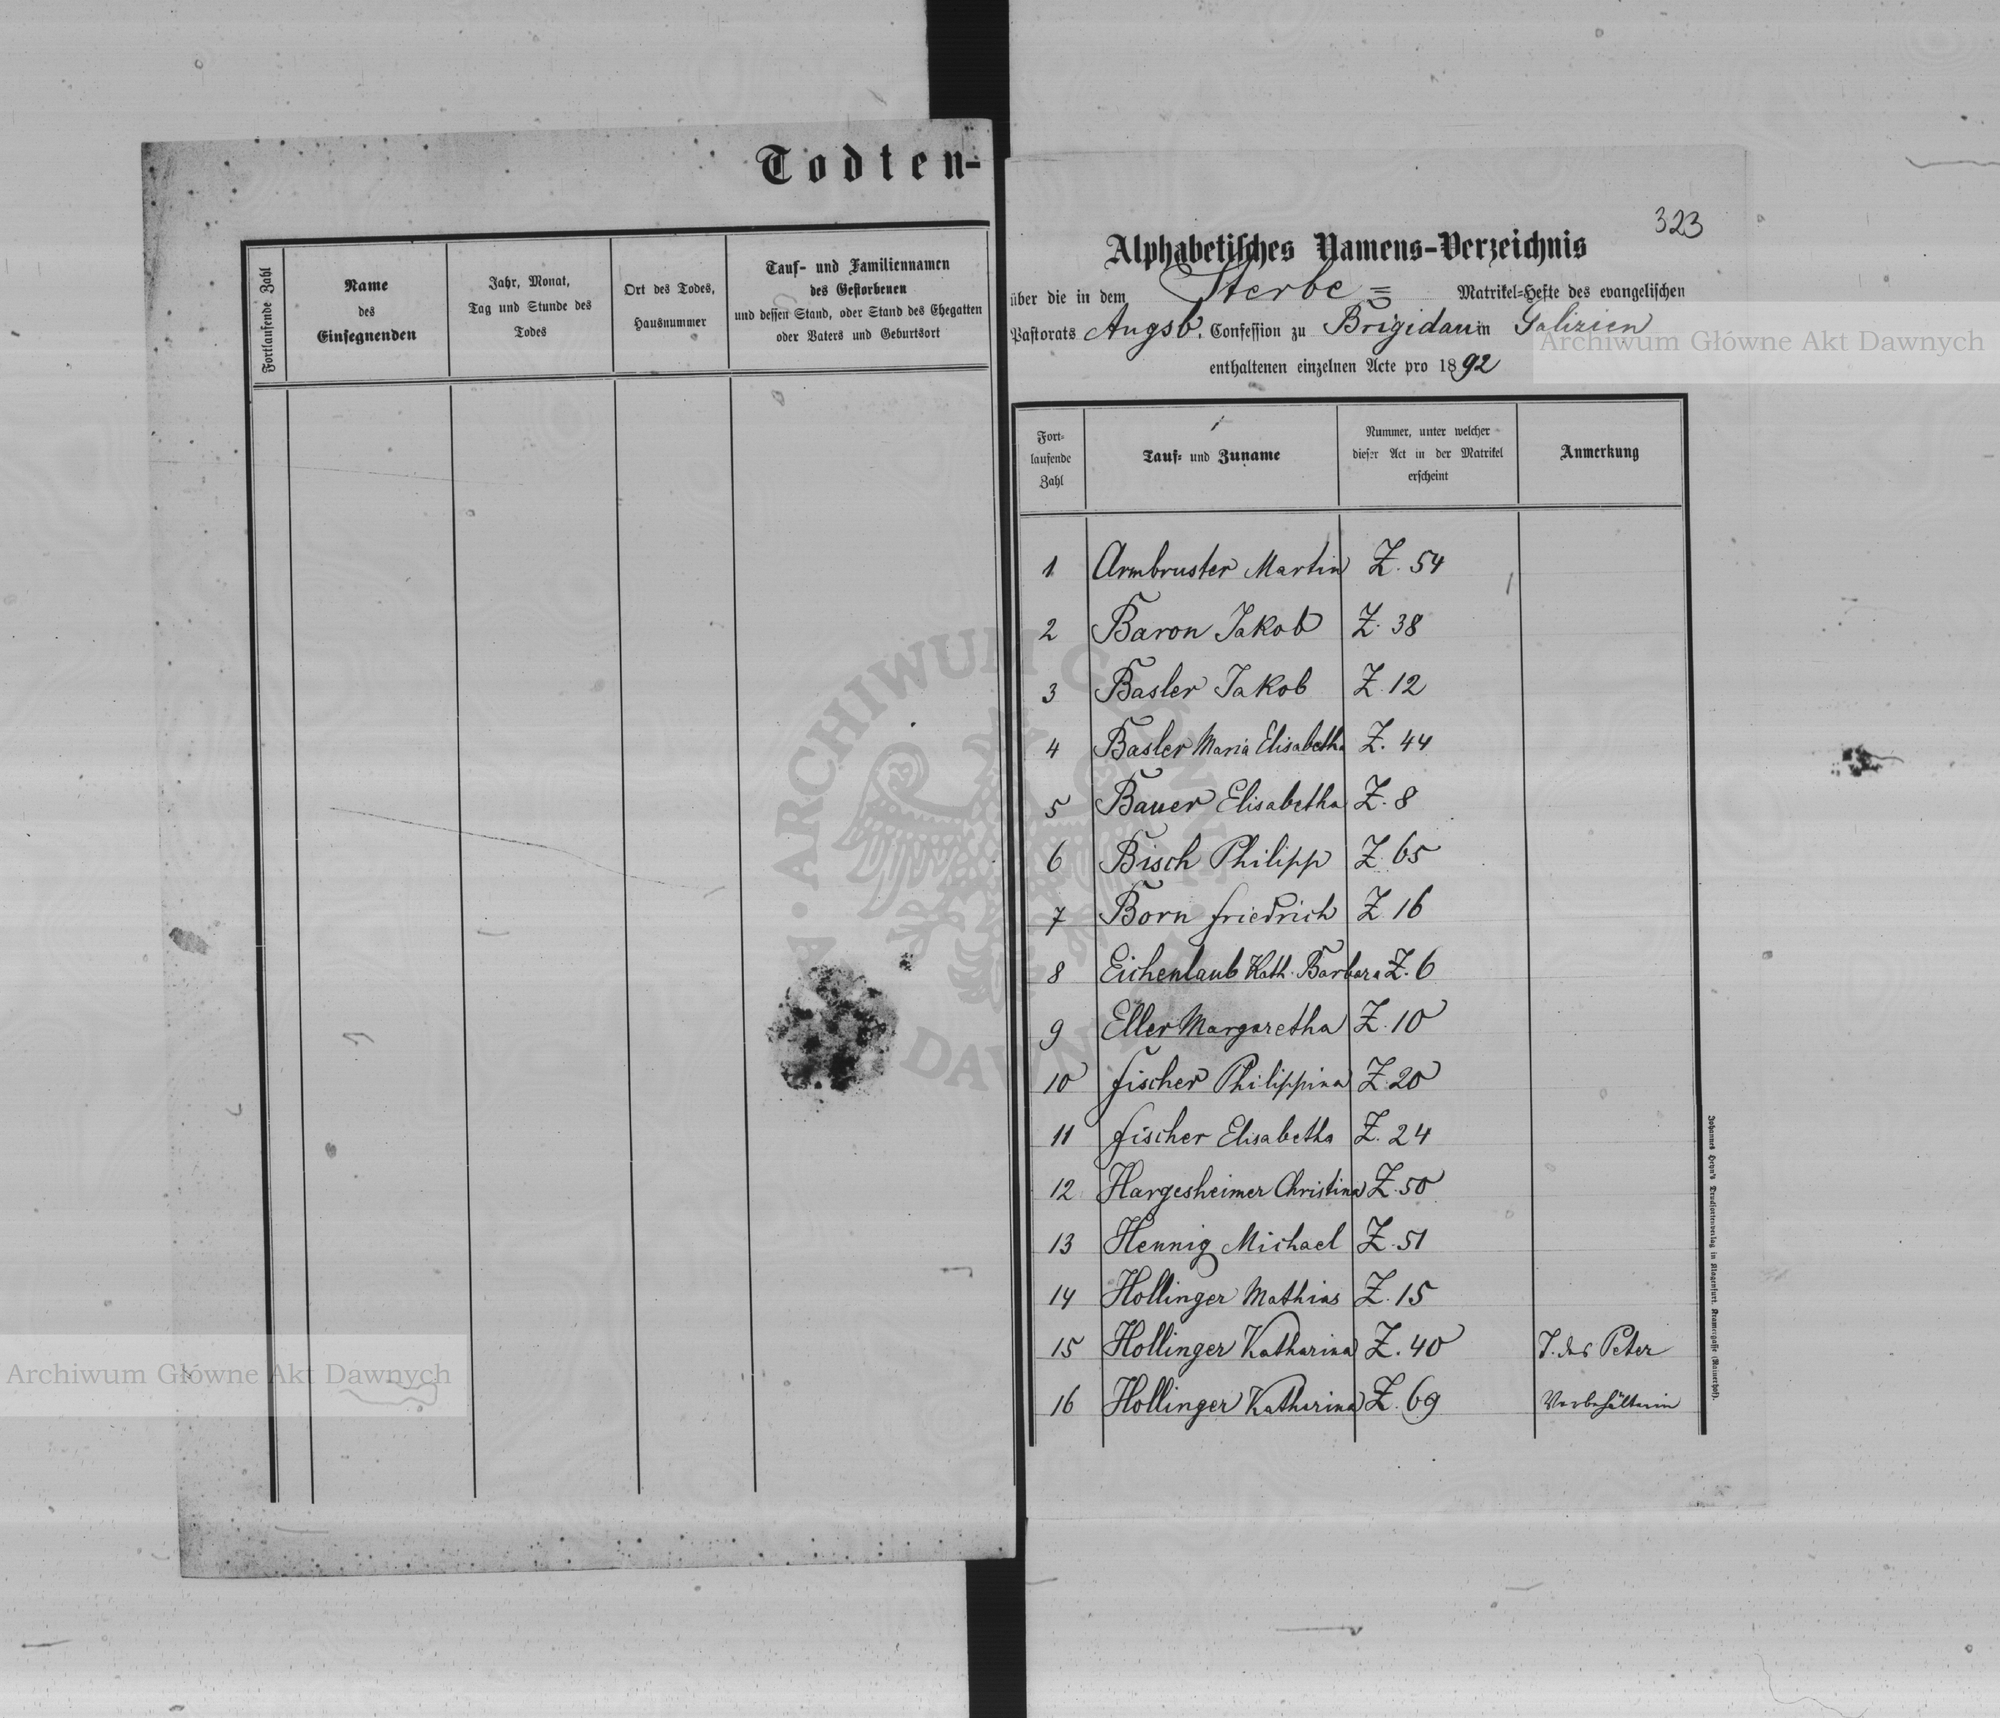 Todten-
Fortlaufende Zahl
Name
des
Einsegnenden
Jahr, Monat,
Tag und Stunde des
Todes
Ort des Todes,
Hausnummer
Tauf- und Familiennamen
des Gestorbenen
und dessen Stand, oder Stand des Ehegatten
oder Vaters und Geburtsort
323
Alphabetisches Namens-Verzeichnis
über die in dem Sterbe= Matrikel-Hefte des evangelischen
Pastorats Augsb. Confession zu Brigidau in Galizien
enthaltenen einzelnen Acte pro 1892
Fort-
laufende
Zahl
Tauf- und Zuname
Nummer, unter welcher
dieser Act in der Matrikel
erscheint
Anmerkung
1 Armbruster Martin Z. 54
2 Baron Jakob Z. 38
3 Basler Jakob Z. 12
4 Basler Maria Elisabetha Z. 44
5 Bauer Elisabetha Z. 8
6 Bisch Philipp Z. 65
7 Born Friedrich Z. 16
8 Eichenlaub Kath. Barbara Z. 6
9 Eller Margaretha Z. 10
10 Fischer Philippina Z. 20
11 Fischer Elisabetha Z. 24
12 Hargesheimer Christina Z. 50
13 Hennig Michael Z. 51
14 Hollinger Mathias Z. 15
15 Hollinger Katharina Z. 40 T. des Peter
16 Hollinger Katharina Z. 69 Vorbehälterin
Johannes Heyn's Drucksortenverlag in Klagenfurt, Kramergasse (Mauerhof).
Archiwum Główne Akt Dawnych
Archiwum Główne Akt Dawnych
ARCHIWUM GŁÓWNE AKT DAWNYCH